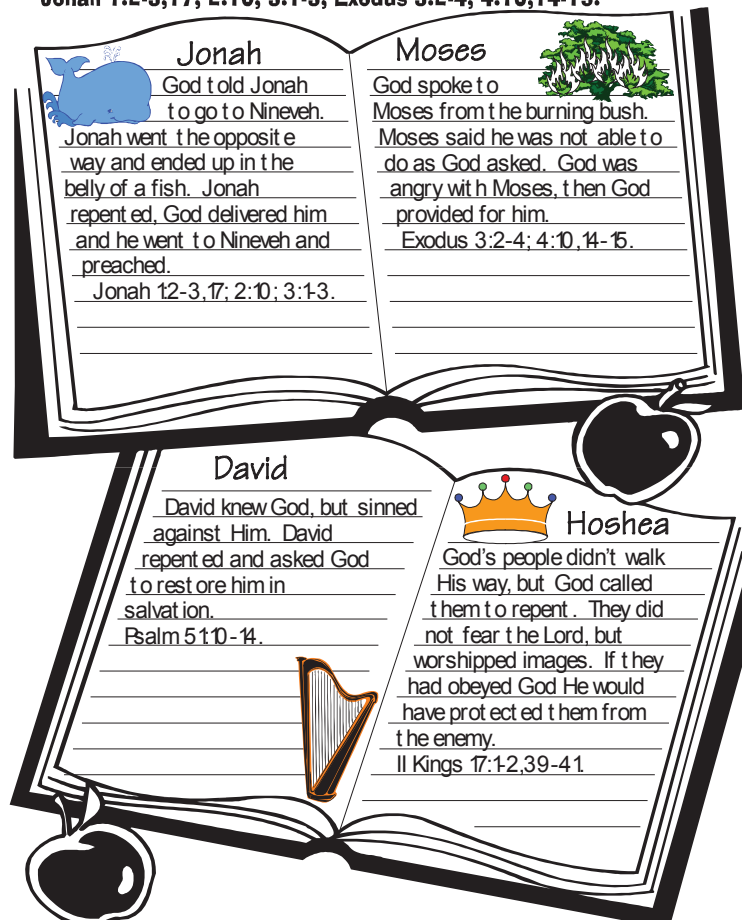 Jonah 1:2-3,17; 2:10; 3:1-3; Exodus 3:2-4; 4:10,14-15.
Jonah
God told Jonah
to go to Nineveh.
Jonah went the opposite
way and ended up in the
belly of a fish. Jonah
repented, God delivered him
and he went to Nineveh and
preached.
Jonah 1:2-3,17; 2:10; 3:1-3.
Moses
God spoke to
Moses from the burning bush.
Moses said he was not able to
do as God asked. God was
angry with Moses, then God
provided for him.
Exodus 3:2-4; 4:10,14-15.
David
David knew God, but sinned
against Him. David
repented and asked God
to restore him in
salvation.
Psalm 51:10-14.
Hoshea
God's people didn't walk
His way, but God called
them to repent. They did
not fear the Lord, but
worshipped images. If they
had obeyed God He would
have protected them from
the enemy.
II Kings 17:1-2,39-41.